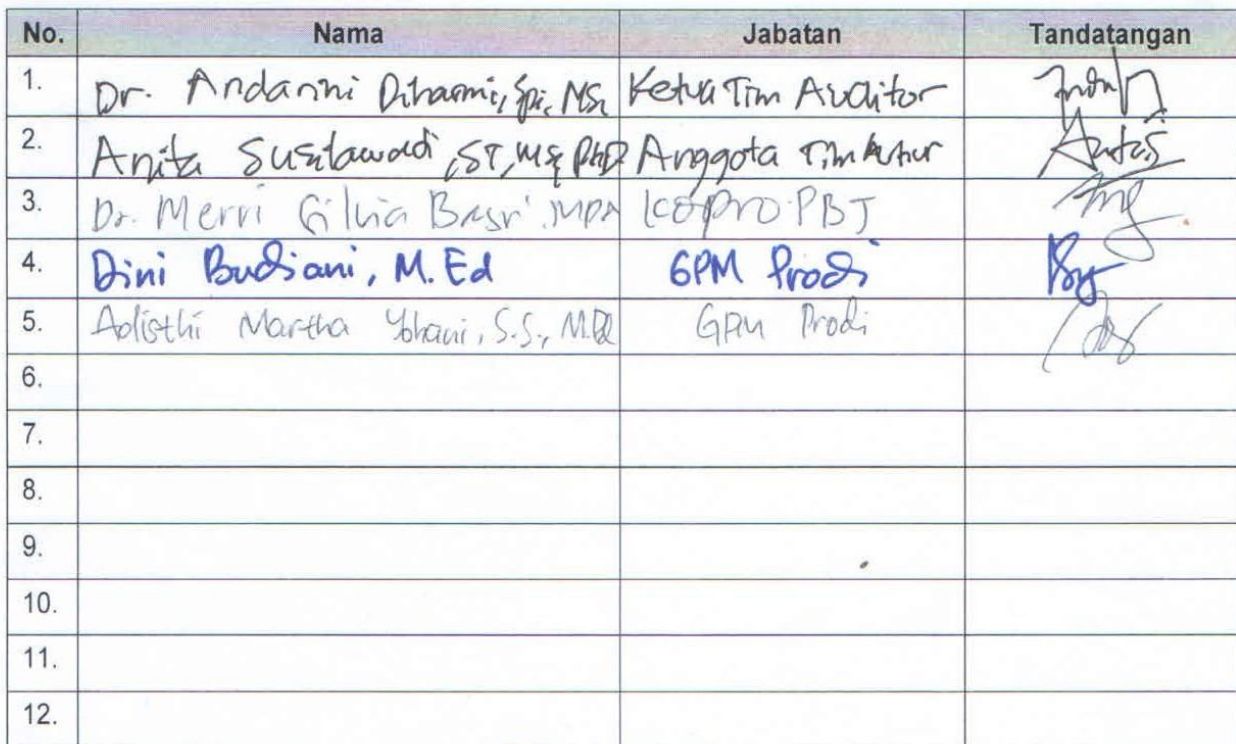 No. Nama Jabatan Tandatangan
1. Dr. Andarini Diharmi, Spi, MSi Ketua Tim Auditor
2. Anita Susilawadi, ST, MSi, PhD Anggota Tim
3. Dr. Merri Silvia Basri MPd Kopro PBJ
4. Dini Budiani, M.Ed GPM Prodi
5. Adisthi Martha Yohani, S.S., M.Pd GPM Prodi
6.
7.
8.
9.
10.
11.
12.